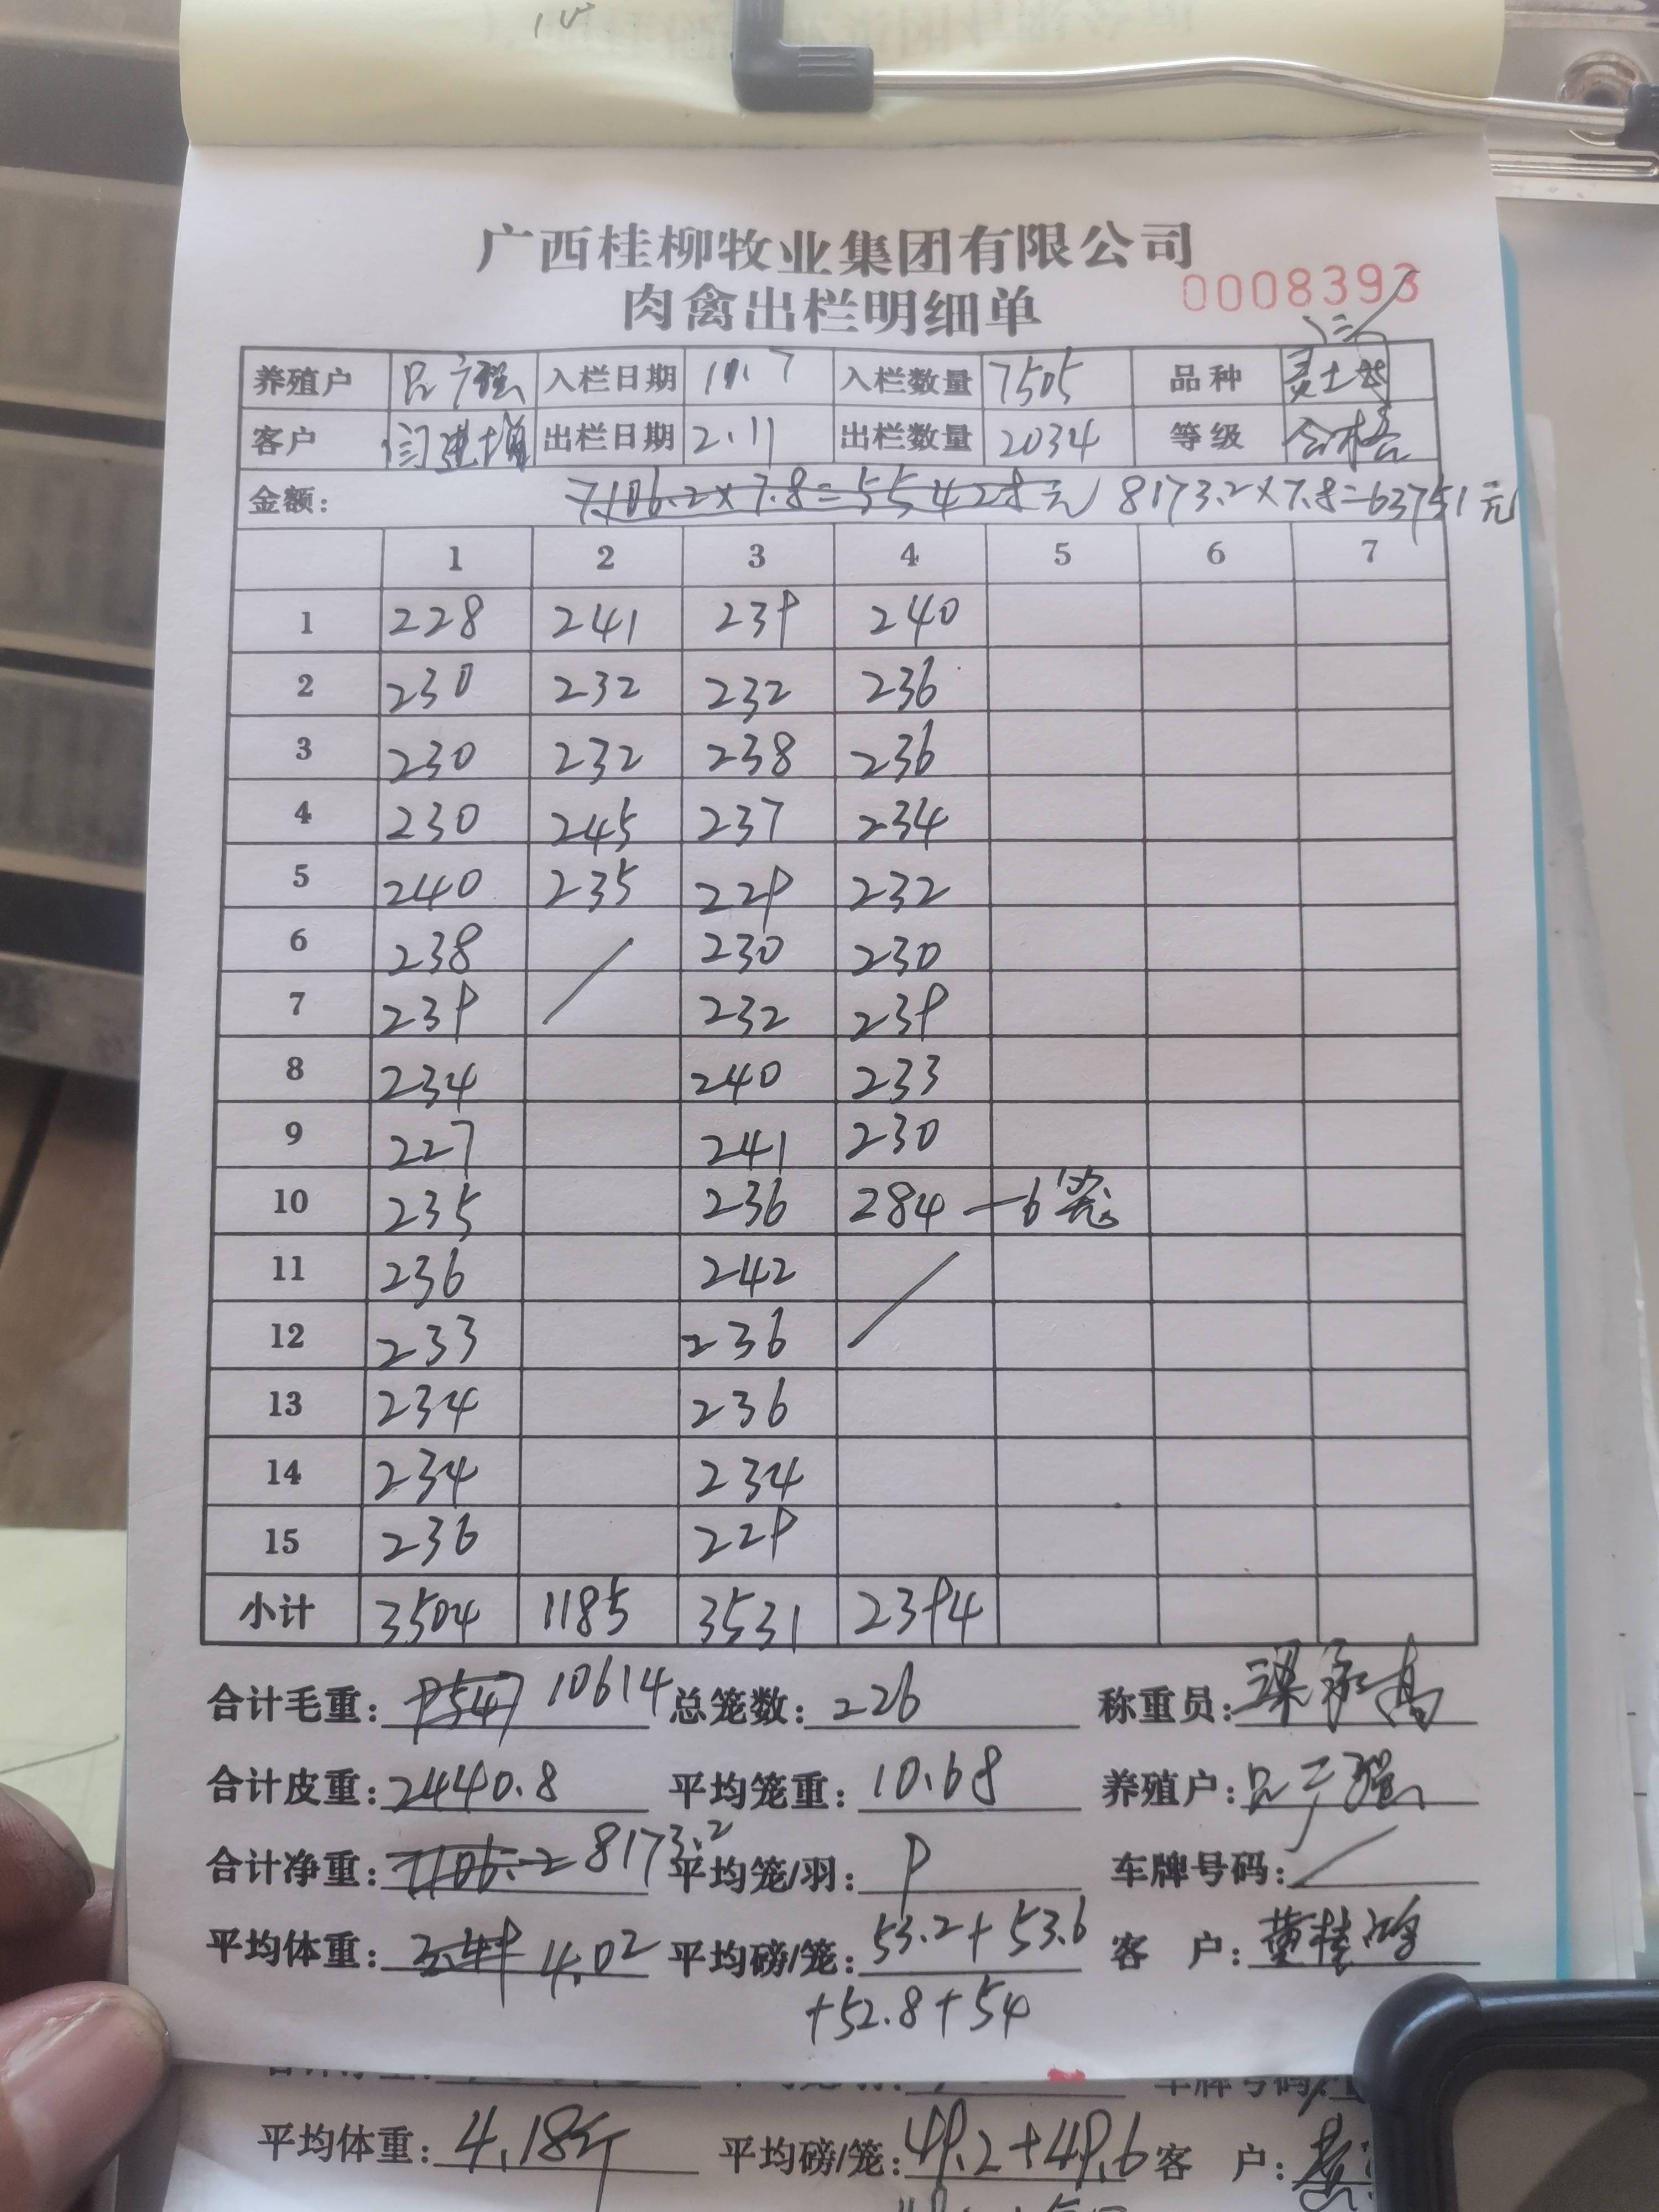 广西桂柳牧业集团有限公司
肉禽出栏明细单 0008393
养殖户 吕广强 入栏日期 11.7 入栏数量 7505 品种
客户 闫进填 出栏日期 2.11 出栏数量 2034 等级 合格
金额: 7106.2×7.8=55428元 8173.2×7.8=63751元
1 2 3 4 5 6 7
1 228 241 239 240
2 230 232 232 236
3 230 232 238 236
4 230 245 237 234
5 240 235 229 232
6 238 / 230 230
7 239 232 239
8 234 240 233
9 227 241 230
10 235 236 284 —6笼
11 236 242 /
12 233 236
13 234 236
14 234 234
15 236 229
小计 3504 1185 3531 2394
合计毛重: 9547 10614 总笼数: 226 称重员: 梁承高
合计皮重: 2440.8 平均笼重: 10.68 养殖户: 吕广强
合计净重: 7106.2 8173.2 平均笼/羽: 9 车牌号码: /
平均体重: 4.02 平均磅/笼: 53.2+53.6 客 户: 黄桂鸿
+52.8+54
平均体重: 4.18斤 平均磅/笼: 49.2+49.6 客 户: 黄